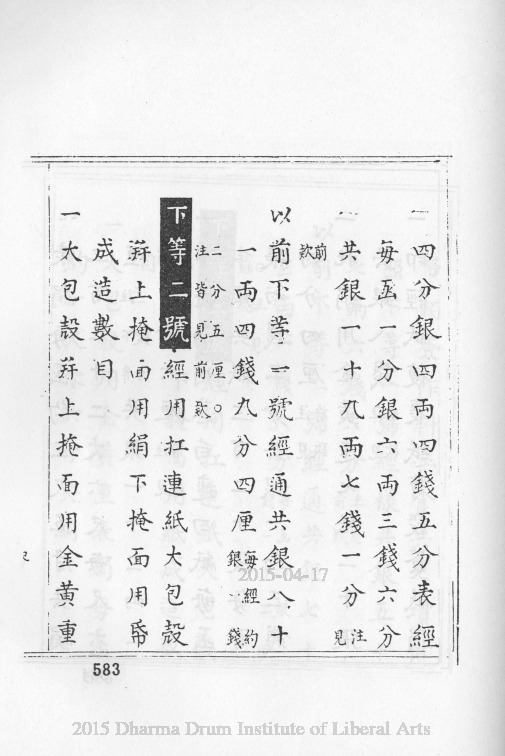 一四分銀四両四錢五分表經
每函一分銀六両三錢六分
一共銀一十九両七錢一分注見
前欵
以前下等一號經通共銀八十
一両四錢九分四厘每經約銀一錢
二分五厘○注皆見前欵
下等二號經用扛連紙大包殼
并上掩面用絹下掩面用帋
成造數目
一大包殼并上掩面用金黃重
583
2015-04-17
2015 Dharma Drum Institute of Liberal Arts